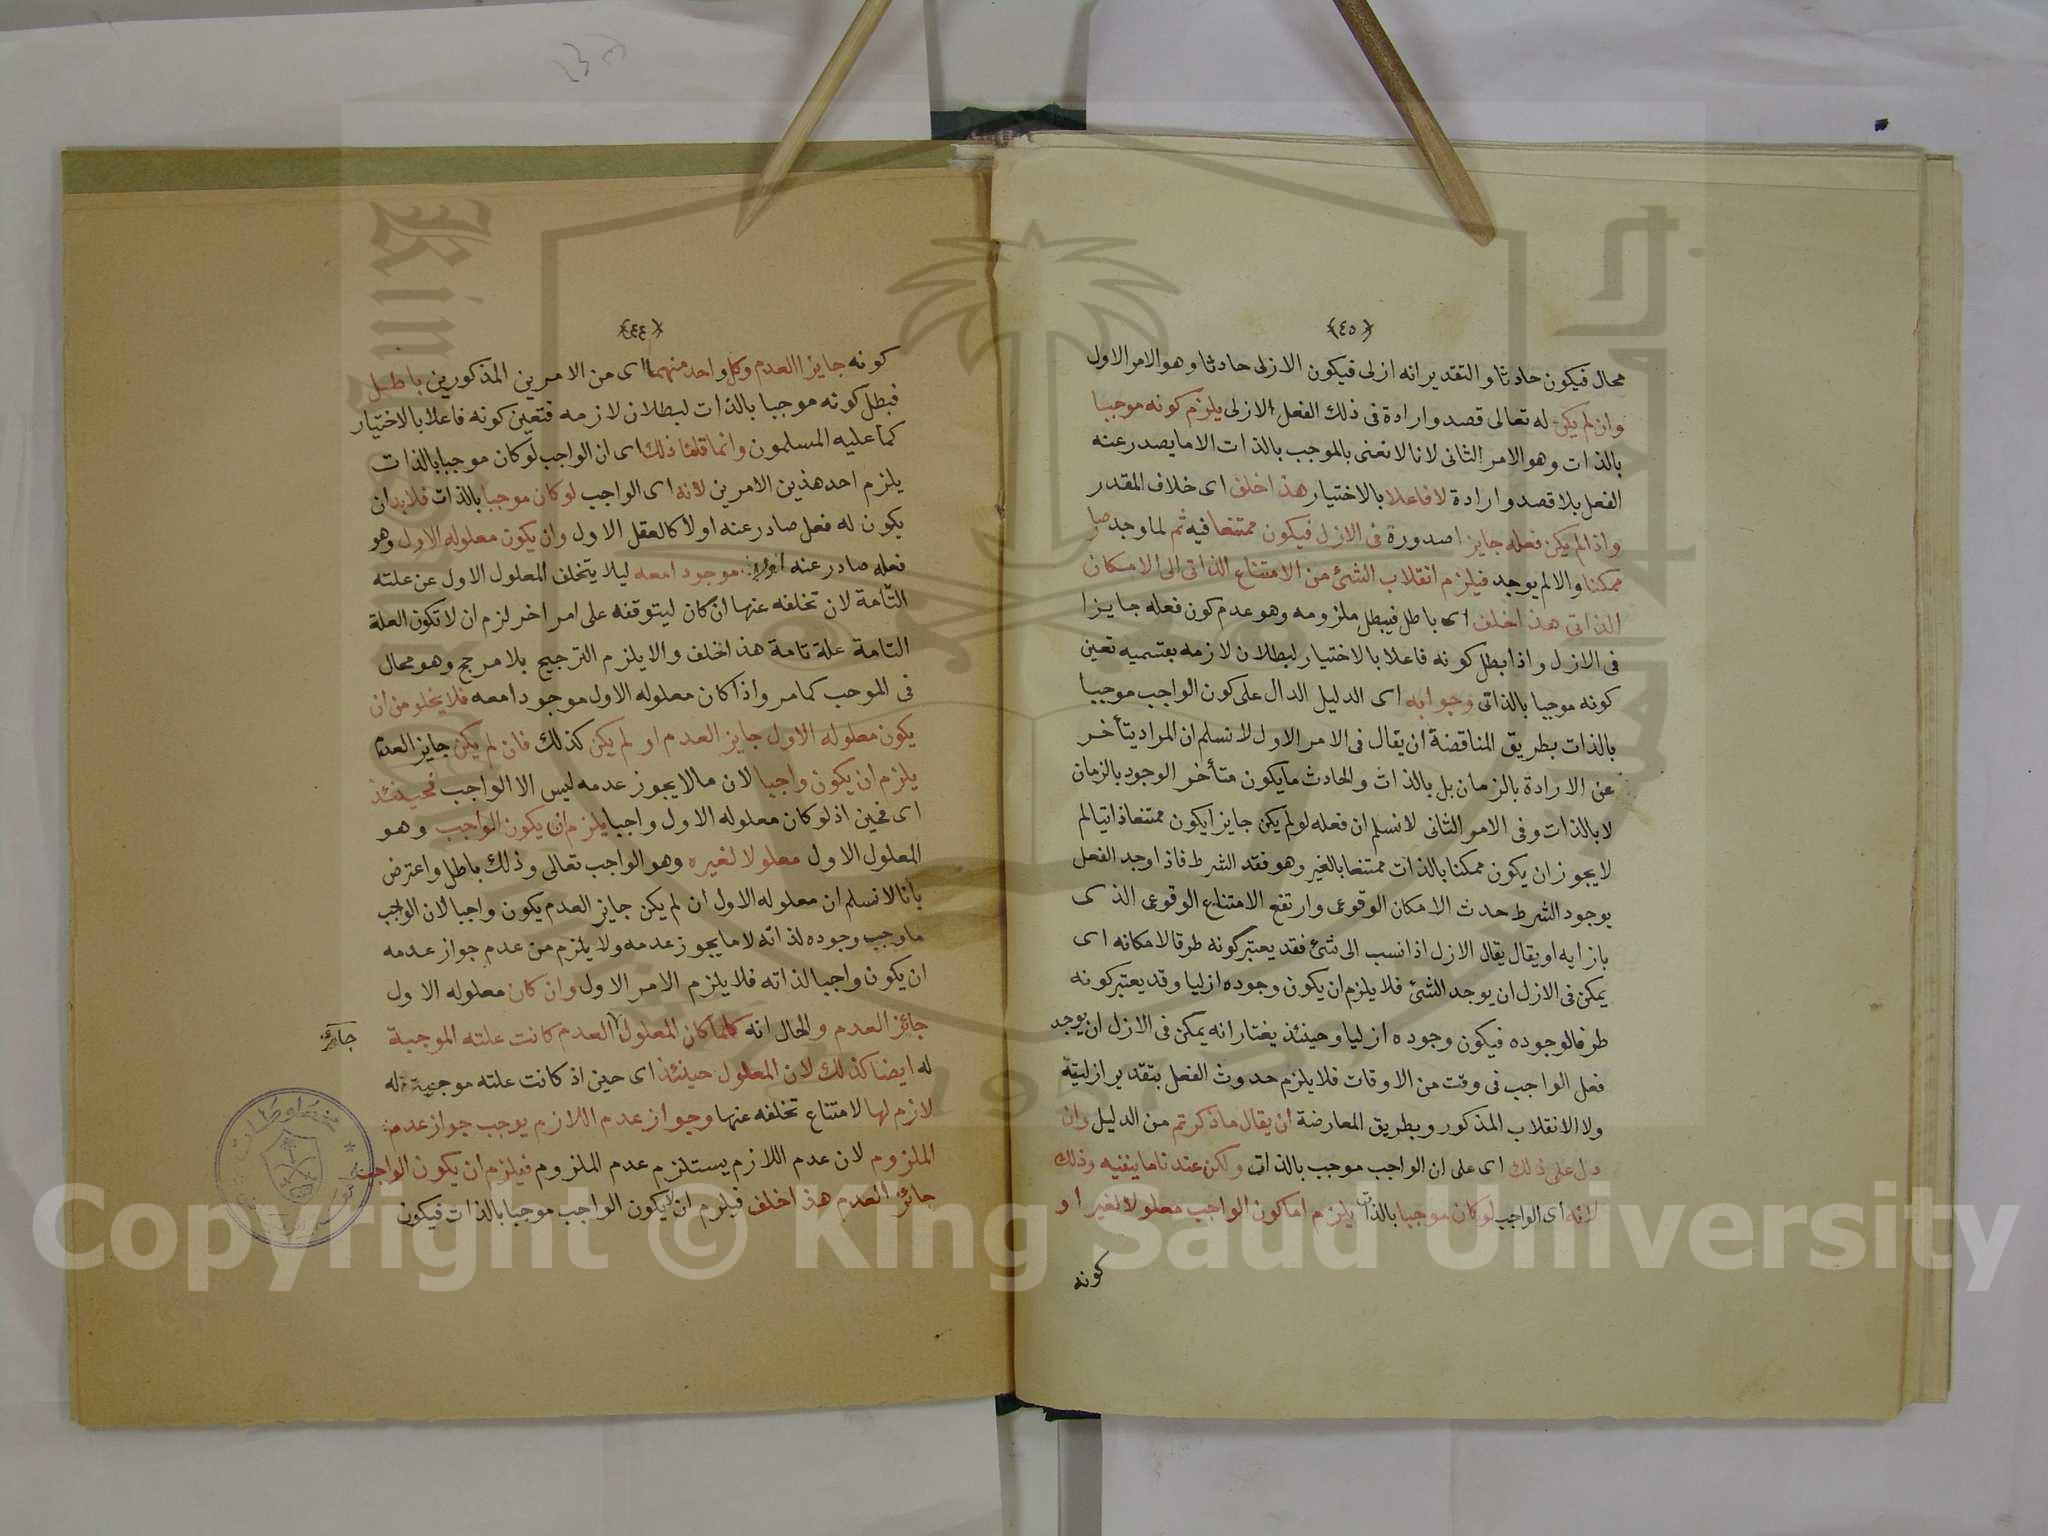 ﴿٤٥﴾
محال فيكون حادثا والتقدير انه ازلى فيكون الازلى حادثا وهو الامر الاول
وان لم يكن له تعالى قصد وارادة فى ذلك الفعل الازلى يلزم كونه موجبا
بالذات وهو الامر الثانى لانا لا نعنى بالموجب بالذات الا ما يصدر عنه
الفعل بلا قصد وارادة لا فاعلا بالاختيار هذا خلف اى خلاف المقدر
واذا لم يكن فعله جايزا صدوره فى الازل فيكون ممتنعا فيه ثم لما وجد صار
ممكنا والا لم يوجد فيلزم انقلاب الشئ من الامتناع الذاتى الى الامكان
الذاتى هذا خلف اى باطل فيبطل ملزومه وهو عدم كون فعله جايزا
فى الازل واذا بطل كونه فاعلا بالاختيار لبطلان لازمه بقسميه تعين
كونه موجبا بالذاتى وجوابه اى الدليل الدال على كون الواجب موجبا
بالذات بطريق المناقضة ان يقال فى الامر الاول لا نسلم ان المراد يتأخر
عن الارادة بالزمان بل بالذات والحادث ما يكون متأخر الوجود بالزمان
لا بالذات وفى الامر الثانى لا نسلم ان فعله لو لم يكن جايزا يكون ممتنعا ذاتيا لم
لا يجوز ان يكون ممكنا بالذات ممتنعا بالغير وهو فقد الشرط فاذا وجد الفعل
بوجود الشرط حدث الامكان الوقوعى وارتفع الامتناع الوقوعى الذى
بازايه او يقال يقال الازل اذا نسب الى شئ فقد يعتبر كونه طرفا لامكانه اى
يمكن فى الازل ان يوجد الشئ فلا يلزم ان يكون وجوده ازليا وقد يعتبر كونه
طرفا لوجوده فيكون وجوده ازليا وحينئذ يختار انه يمكن فى الازل ان يوجد
فعل الواجب فى وقت من الاوقات فلا يلزم حدوث الفعل بتقدير ازليته
ولا الانقلاب المذكور وبطريق المعارضة ان يقال ما ذكرتم من الدليل وان
دل على ذلك اى على ان الواجب موجب بالذات ولكن عندنا ما ينفيه وذلك
لانه اى الواجب لو كان موجبا بالذات يلزم اما كون الواجب معلولا لغيره او
كونه
﴿٤٤﴾
كونه جايزا العدم وكل واحد منهما اى من الامرين المذكورين باطل
فبطل كونه موجبا بالذات لبطلان لازمه فتعين كونه فاعلا بالاختيار
كما عليه المسلمون وانما قلنا ذلك اى ان الواجب لو كان موجبا بالذات
يلزم احد هذين الامرين لانه اى الواجب لو كان موجبا بالذات فلا بد ان
يكون له فعل صادر عنه اولا كالعقل الاول وان يكون معلوله الاول وهو
فعله صادر عنه اولا موجودا معه ليلا يتخلف المعلول الاول عن علته
التامة لان تخلفه عنها ان كان ليتوقفه على امر اخر لزم ان لا تكون العلة
التامة علة تامة هذا خلف والا يلزم الترجيح بلا مرجح وهو محال
فى الموجب كما مر واذا كان معلوله الاول موجودا معه فلا يخلو من ان
يكون معلوله الاول جايز العدم او لم يكن كذلك فان لم يكن جايز العدم
يلزم ان يكون واجبا لان ما لا يجوز عدمه ليس الا الواجب فحينئذ
اى فحين اذ لو كان معلوله الاول واجبا يلزم ان يكون الواجب وهو
المعلول الاول معلولا لغيره وهو الواجب تعالى وذلك باطل واعترض
بانا لا نسلم ان معلوله الاول ان لم يكن جايز العدم يكون واجبا لان الواجب
ما وجب وجوده لذاته لا ما يجوز عدمه ولا يلزم من عدم جواز عدمه
ان يكون واجبا لذاته فلا يلزم الامر الاول وان كان معلوله الاول
جائز العدم والحال انه كلما كان المعلول العدم كانت علته الموجبة
جائز
له ايضا كذلك لان المعلول حينئذ اى حين اذ كانت علته موجبة له
لازم لها لامتناع تخلفه عنها وجواز عدم اللازم يوجب جواز عدم
الملزوم لان عدم اللازم يستلزم عدم الملزوم فيلزم ان يكون الواجب
جائز العدم هذا خلف فيلزم ان لا يكون الواجب موجبا بالذات فيكون
Copyright © King Saud University
1957